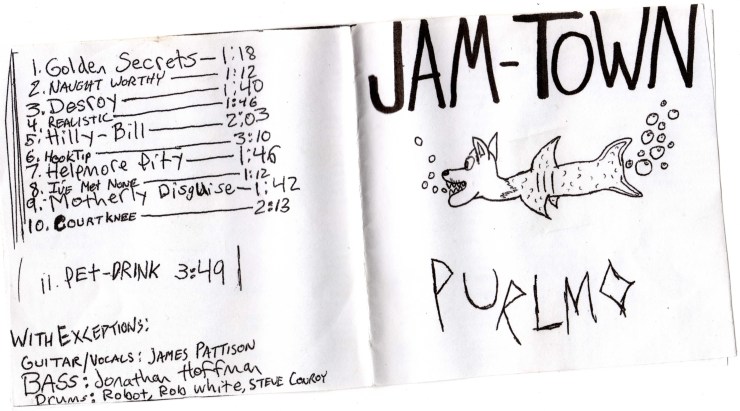 1. Golden Secrets — 1:18
2. NAUGHT WORTHY — 1:12
3. Desroy — 1:40
4. REALISTIC — 1:46
5. Hilly-Bill — 2:03
6. HOOKTIP — 3:10
7. Helpmore Pity — 1:46
8. I'VE MET NONE — 1:12
9. Motherly Disguise — 1:42
10. COURTKNEE — 2:13
11. PET-DRINK 3:49
WITH EXCEPTIONS:
GUITAR/VOCALS: JAMES PATTISON
BASS: Jonathan Hoffman
Drums: Robot, Rob White, STEVE CONROY
JAM-TOWN
PURLMO